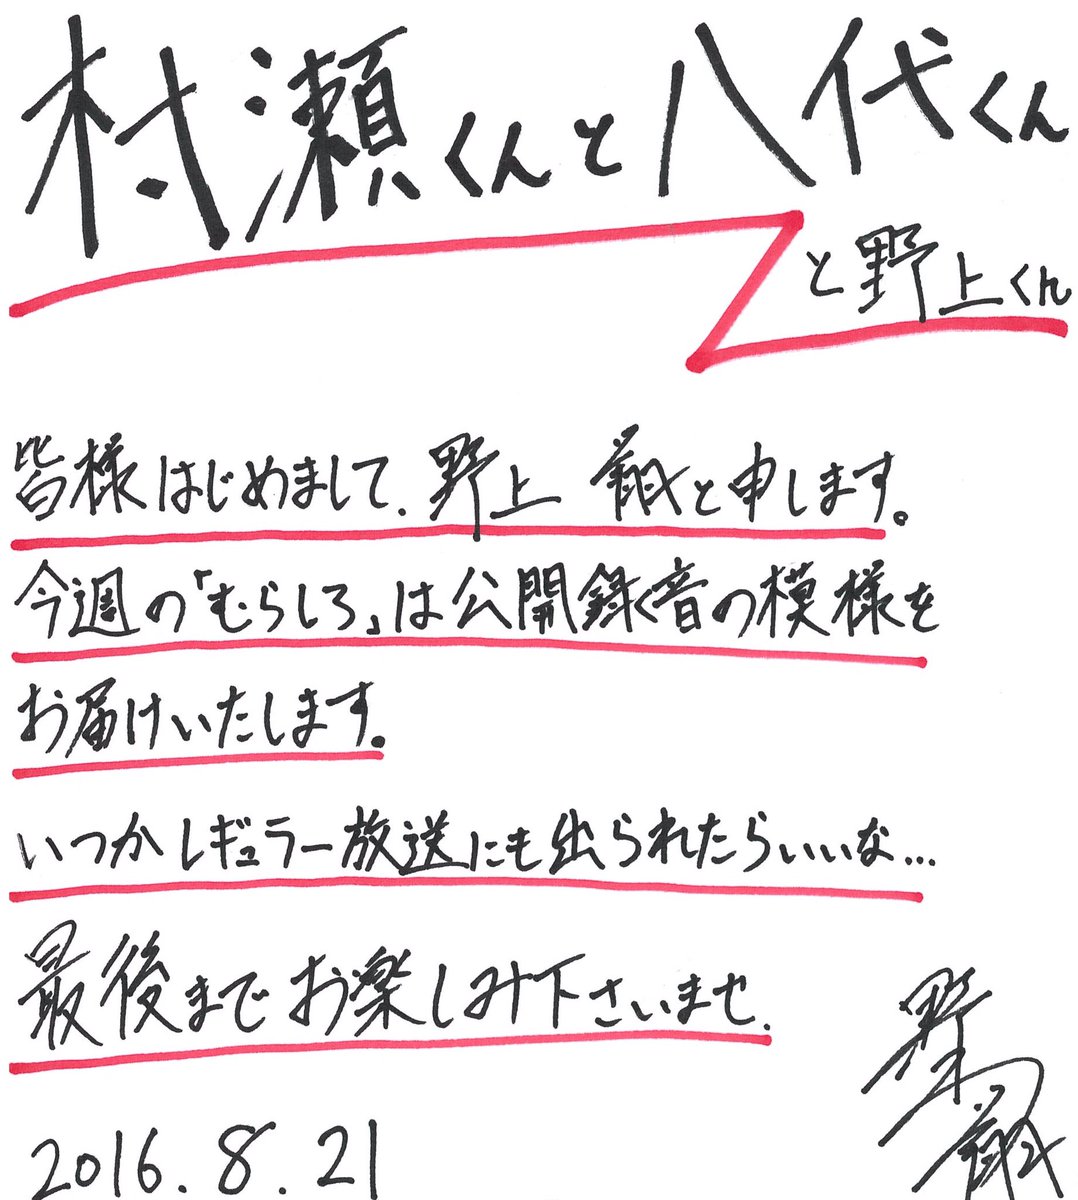 村瀬くんと八代くん
と野上くん
皆様はじめまして、野上 叡と申します。
今週の「むらしろ」は公開録音の模様を
お届けいたします。
いつかレギュラー放送にも出られたらいいな…
最後までお楽しみ下さいませ。
2016.8.21